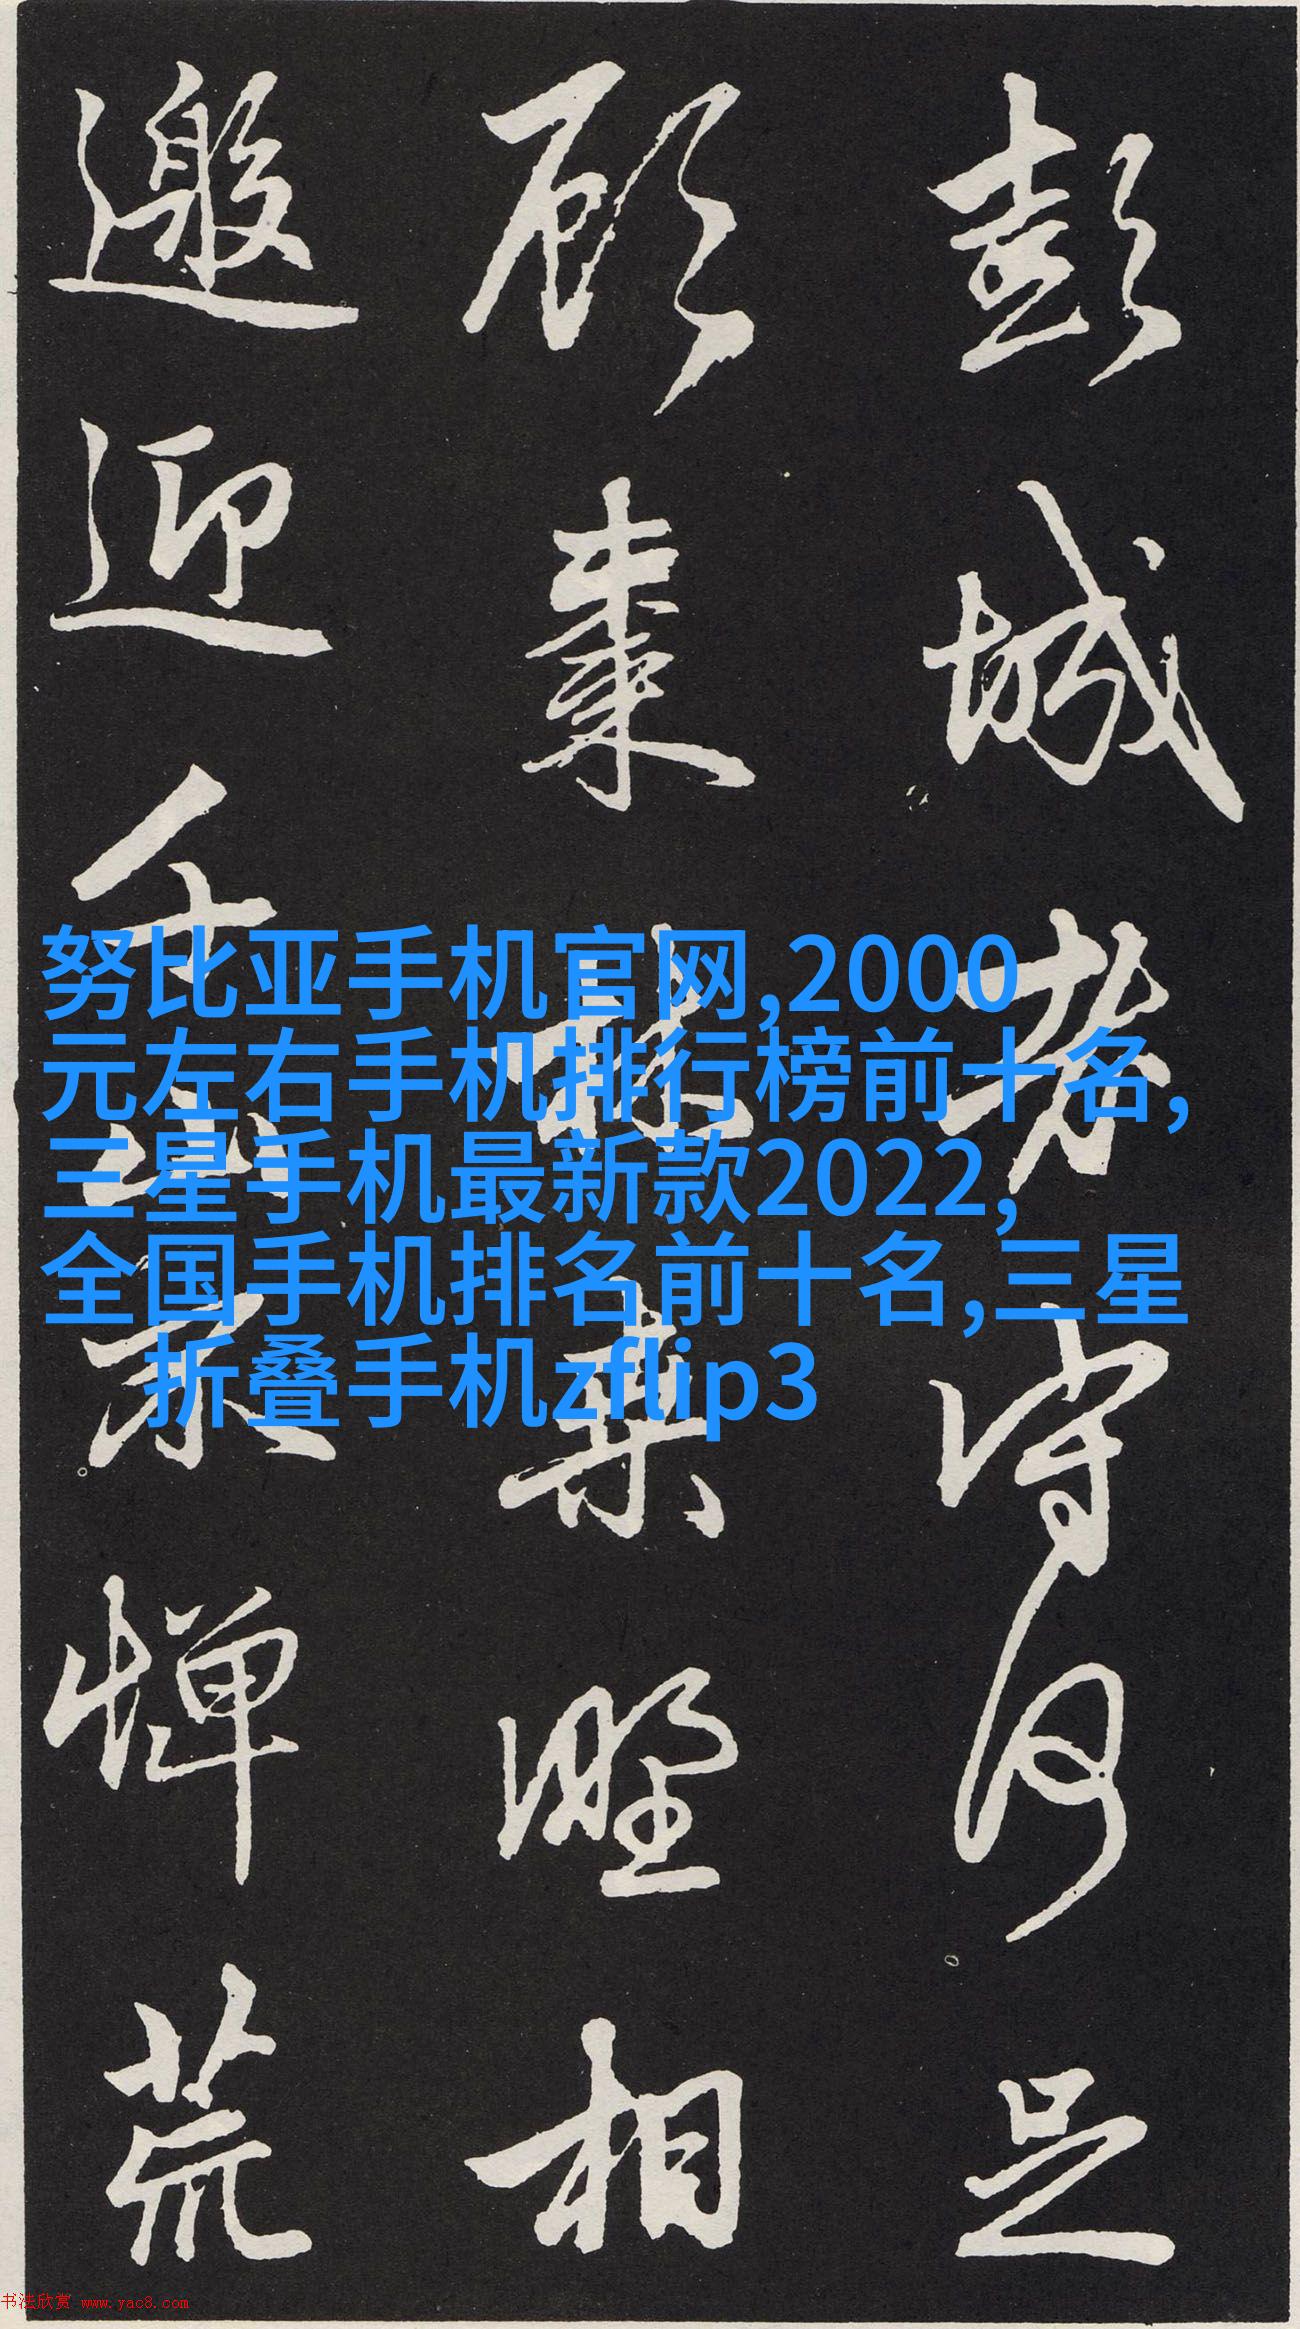 彭城老守何足
顧棗林桑野相
邀迎千山不憚荒
努比亚手机官网,2000
元左右手机排行榜前十名,
三星手机最新款2022,
全国手机排名前十名,三星
折叠手机zflip3
书法欣赏 www.yac8.com